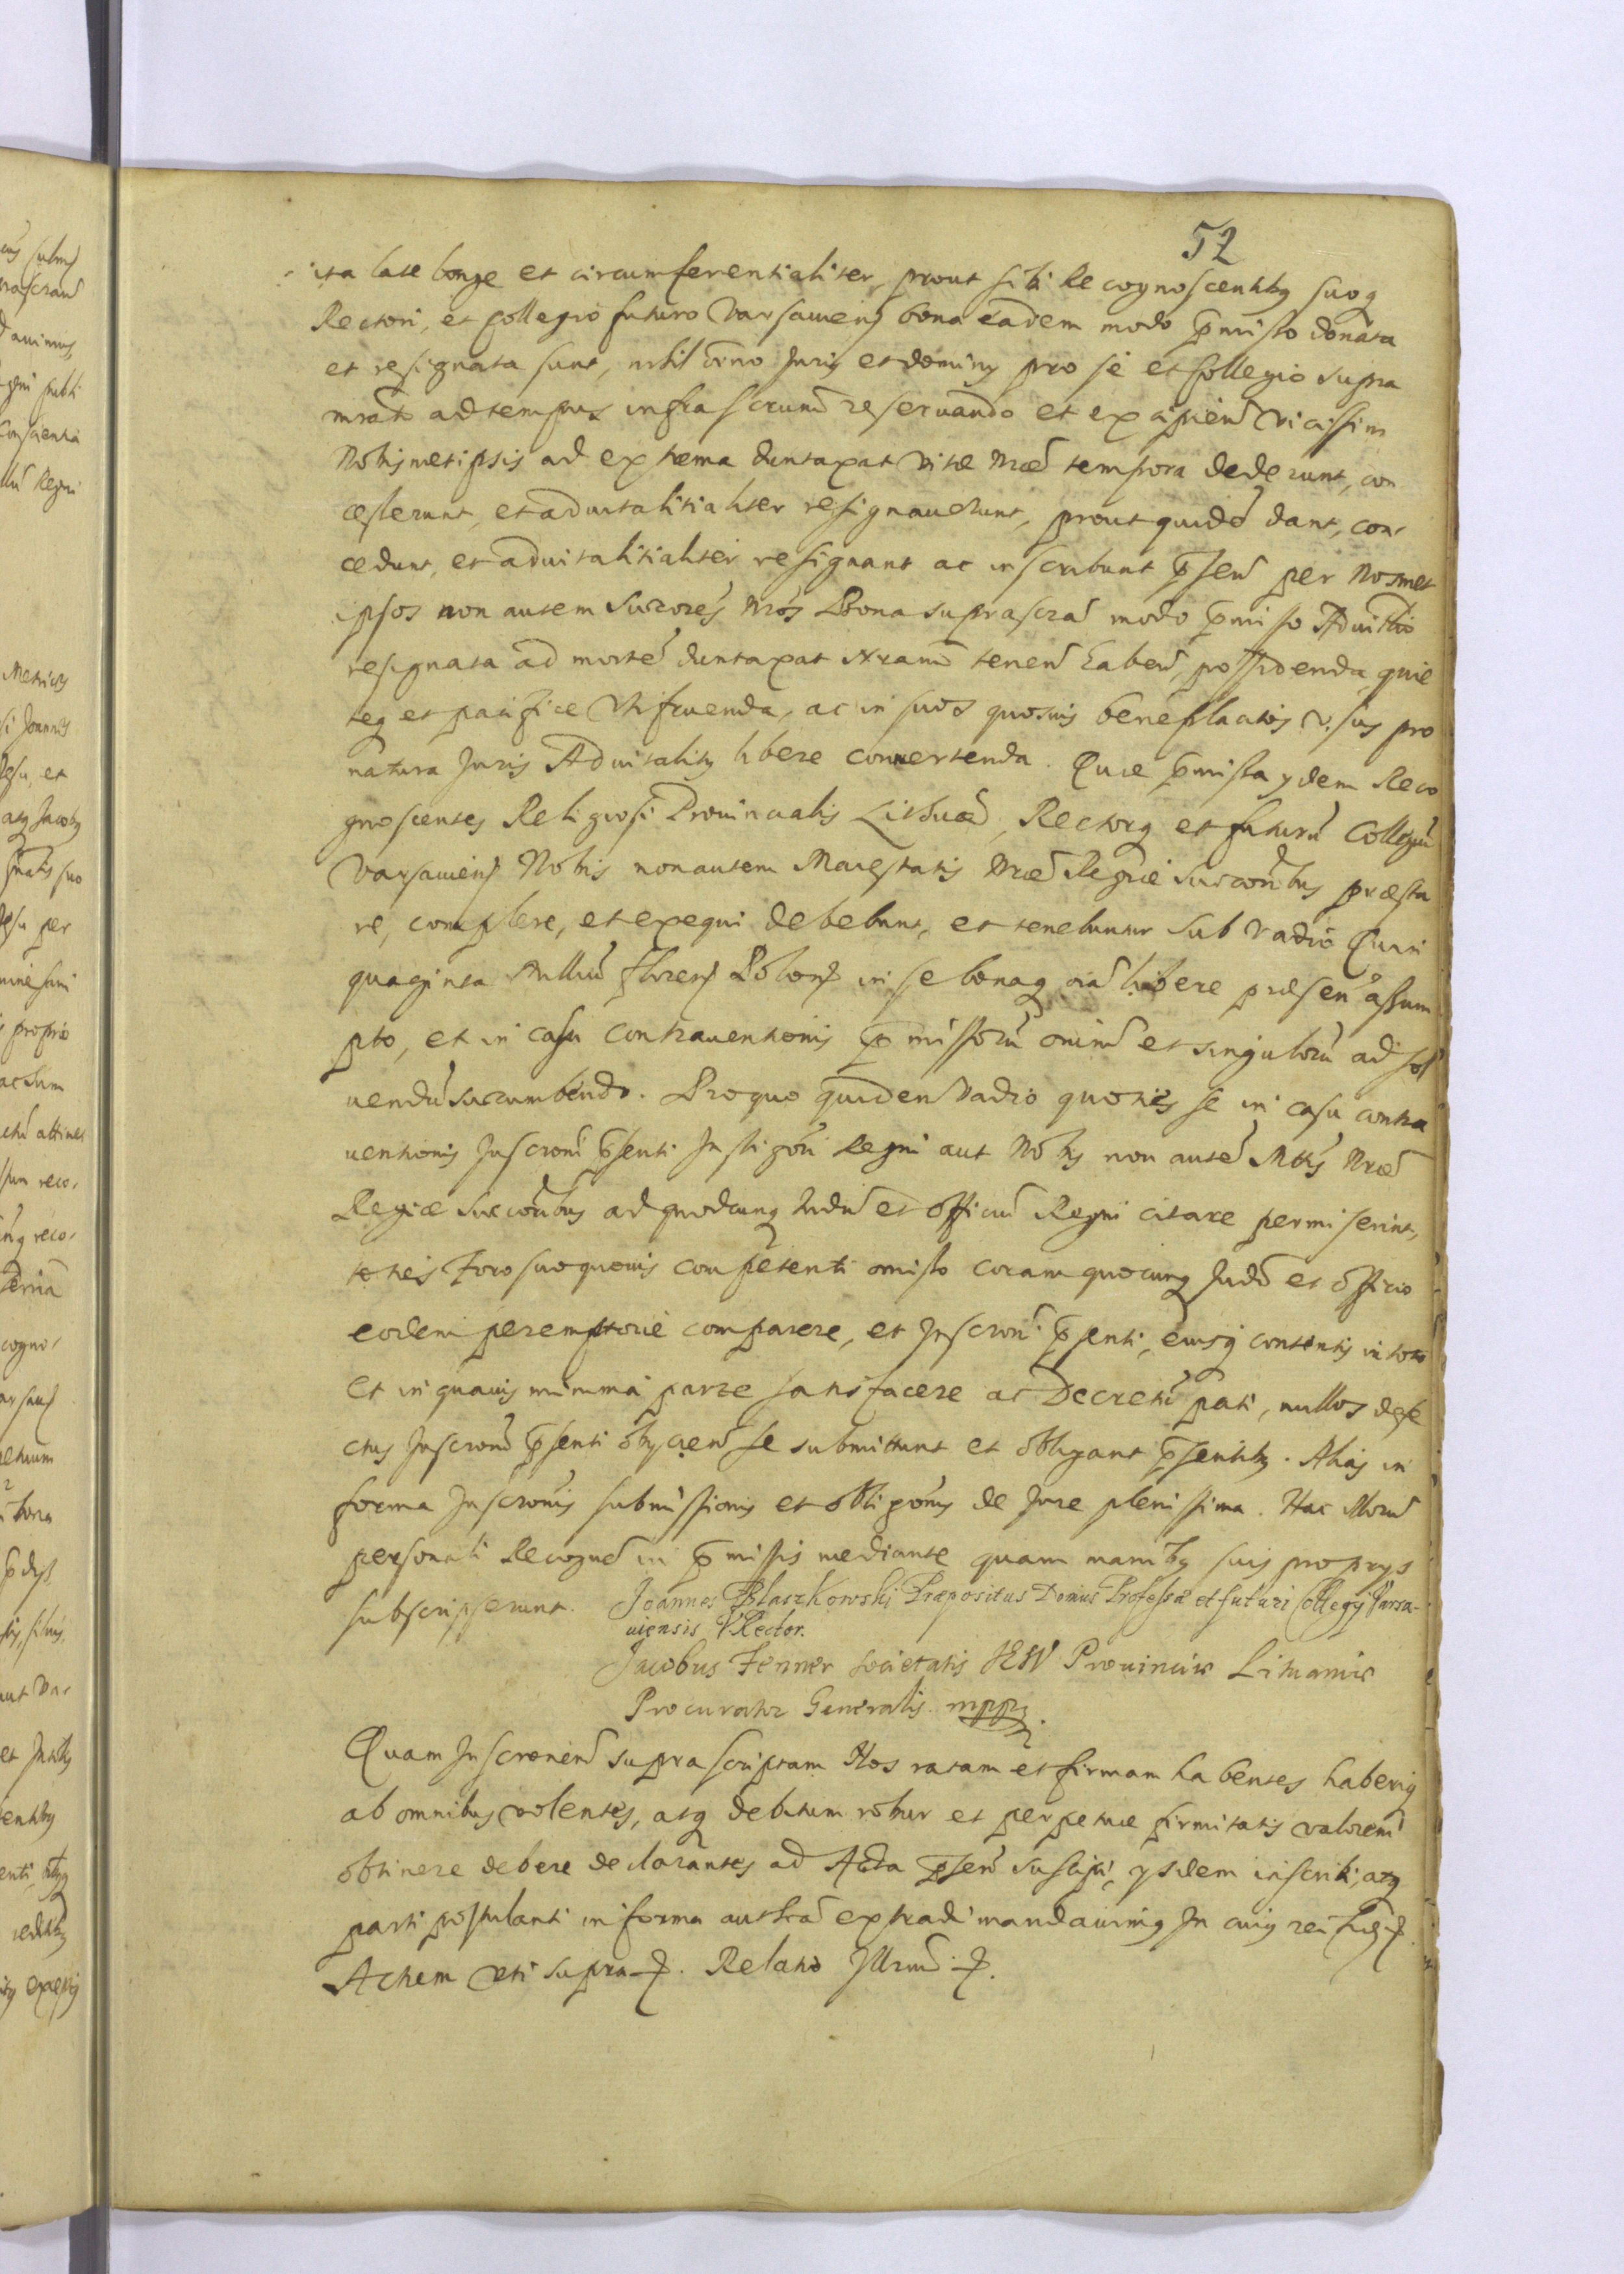 52
ita late longe et circumferentialiter, prout sibi Recognoscentibq suoq
Rectori, et Collegio futuro Varsauiens bona eadem modo pmisso donata
et resignata sunt, nihil omno Juris et dominy pro se et Collegio supra
mrato ad tempus infrascrum reseruando et excipien vicissim
Nobismetipsis ad extrema duntaxat vitæ nræ tempora dederunt, con
cesserunt, et aduitalitialiter resignauerunt, prout quidē dant, con-
cedunt, et aduitalitialiter resignant ac inscribunt psen per Nosmet
ipsos non autem Succores nros Bona suprascra modo pmisso Aduitlio
resignata ad mortē duntaxat nram tenen haben, possidenda, quie
teq et pacifice utifruenda, ac in suos quosuis beneplacitos vsus pro
natura Juris Aduitality libere conuertenda. Quæ pmissa ydem Reco
gnoscentes Religiosi Prouincialis Lithuæ, Rectorq et futurū Collegiū
Varsauiens Nobis non autem Maiestatis Nræ Regiæ Succoribus præsta
re, complere, et exequi debebunt, et tenebuntur sub vadio Quin
quaginta Milliū florens Polons in se bonaq oia libere præsen assum
pto, et in casu contrauentionis pmissorū omniū et singulorū ad sol
uendū succumbendo. Pro quo quidem Vadio quoties se in casu contra
uentionis Inscroni psenti Instigōri Regni aut Nobis non autē Mttis Nræ
Regiæ Succoribus ad quodcunq Judiū et Officiū Regni citare permiserint,
toties foro suo quouis competenti omisso coram quocunq Judō et officio
eodem peremptorie comparere, et Inscroni psenti, eiusq contentis in toto
et in quauis minima parte satisfacere ac Decretū pati, nullos defe
ctus Inscroni psenti obijcien se submittunt et obligant psentibq. Alias in
forma Inscronis submissionis et obligōnis de Jure plenissima. Hac Illorū
personali Recogne in pmissis mediante quam manibq suis proprys
subscripserunt. Joannes Blaszkowski Præpositus Domus Professæ et futuri Collegij Varsa-
uiensis VRector.
Jacobus Fenner Societatis IESV Prouinciæ Lituaniæ
Procurator Generalis mppa.
Quam Inscronem suprascriptam Nos ratam et firmam habentes haberiq
ab omnibus volentes, atq debitum robur et perpetuæ firmitatis valorem
obtinere debere declarantes ad Acta psen suscipi, ysdem inscribi, atq
parti postulanti in forma authca extradi mandauimq In cuiq rei fidē
Actum uti supra. Relatio Illrmi